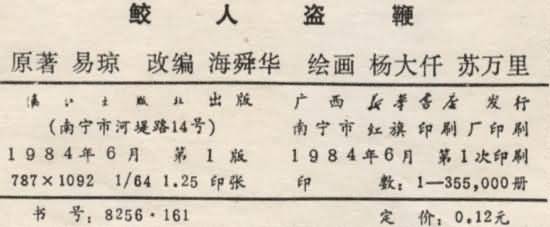 鲛人盗鞭
原著 易琼 改编 海舜华 绘画 杨大仟 苏万里
漓江出版社出版 广西新华书店发行
(南宁市河堤路14号) 南宁市红旗印刷厂印刷
1984年6月 第1版 1984年6月 第1次印刷
787×1092 1/64 1.25 印张 印 数：1—355,000册
书号：8256·161 定价：0.12元